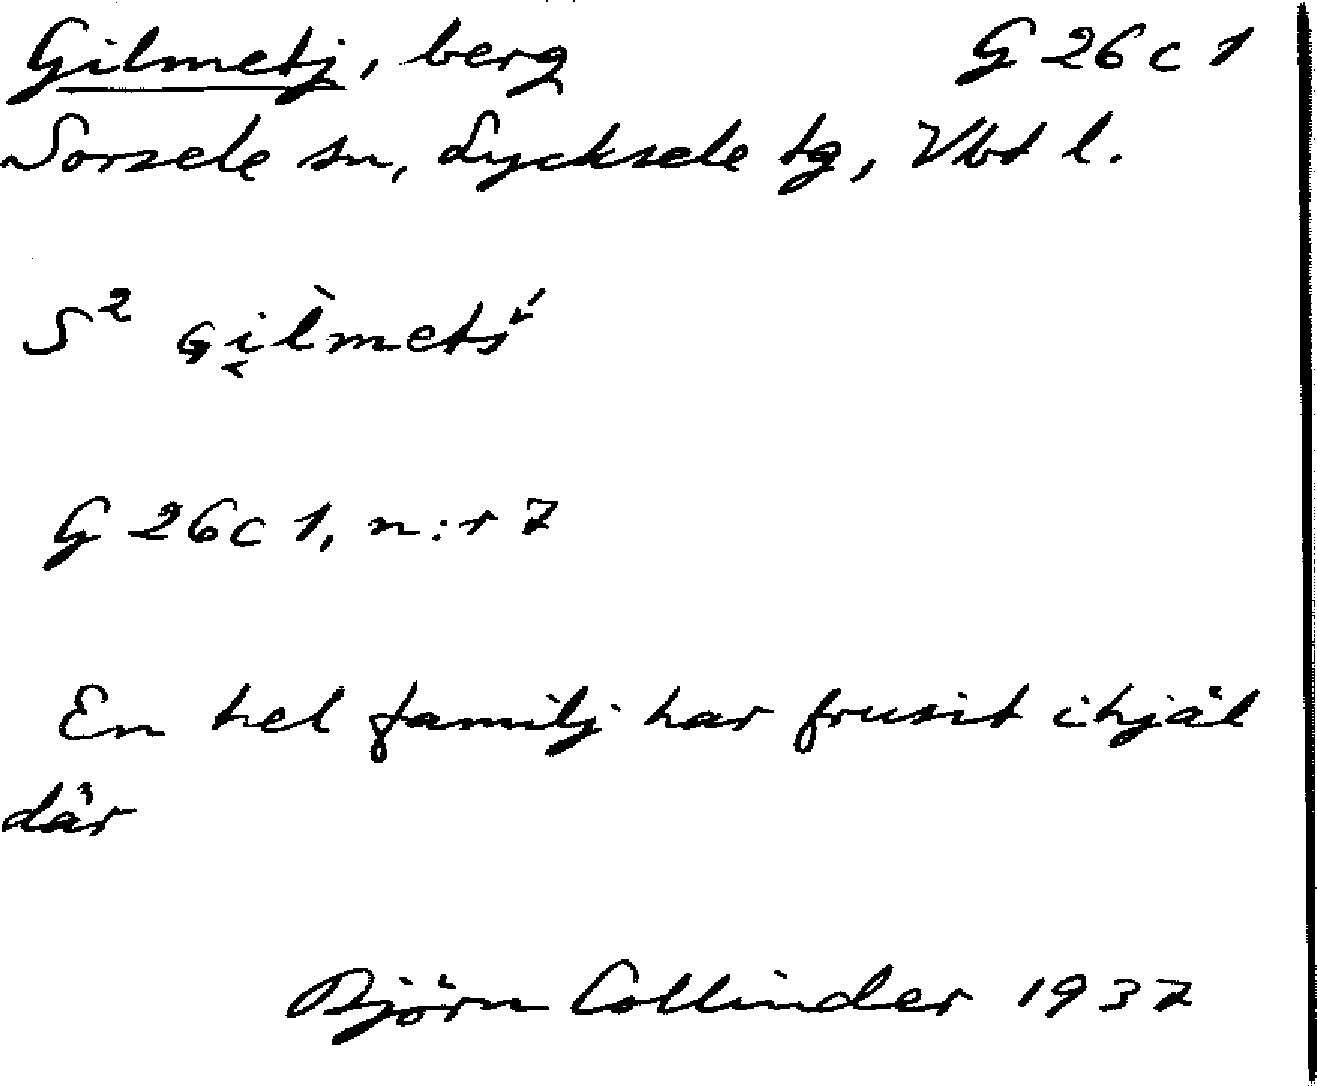 Gilmetj, berg G 26 c 1
Sorsele sn, Lycksele tg, Vbt l.
S² Gi̮l̀mets̀́
G 26 c 1, n:r 7
En hel familj har frusit ihjäl
där
Björn Collinder 1937